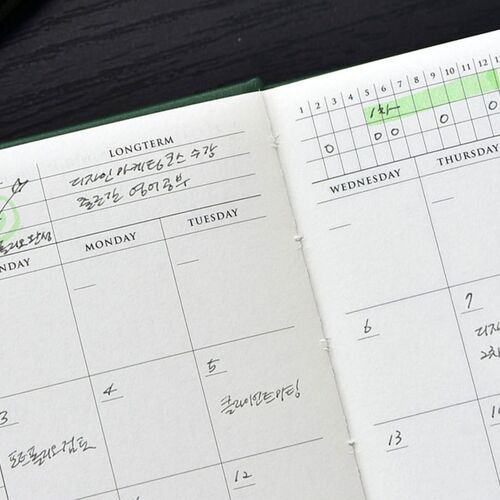 LONGTERM
디자인 마케팅 코스 수강
출근길 영어공부
MONDAY
TUESDAY
3
4
5
포트폴리오 검토
클라이언트 미팅
12
1 2 3 4 5 6 7 8 9 10 11 12
1차
0 0 0 0 0
WEDNESDAY
THURSDAY
6
7
2차
13